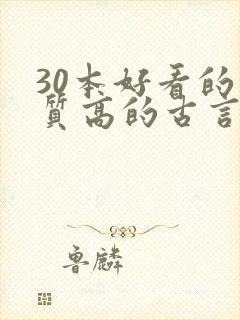 30本好看的
质高的古言
鲁麟